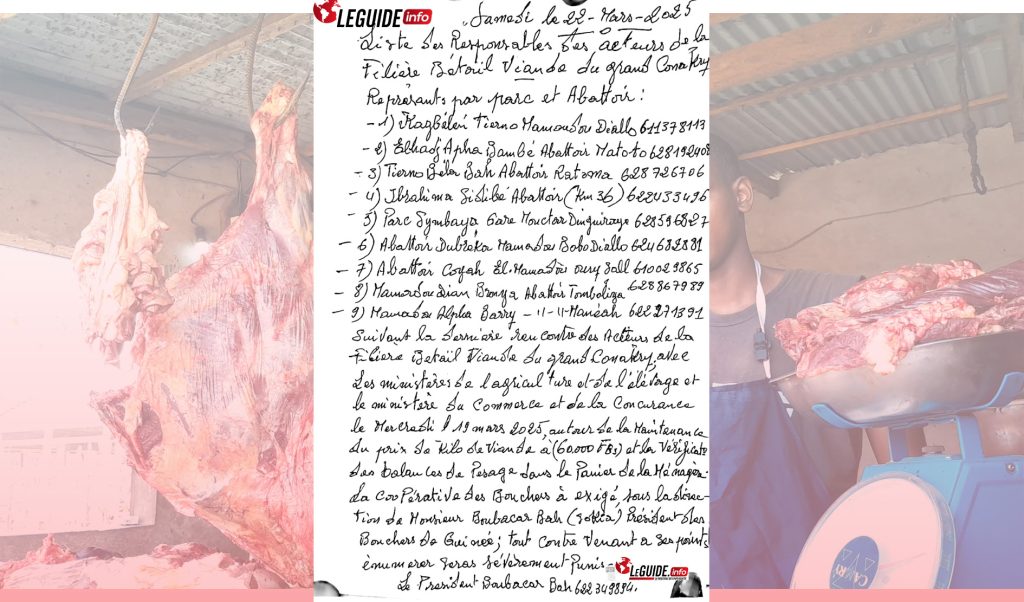 LEGUIDE.info
Samedi le 22-Mars-2025
Liste des Responsables des acteurs de la
Filière Bétail Viande du grand Conakry
Représants par parc et Abattoir :
-1) Kagbélén Tierno Mamoudou Diallo 611378113
-2) Elhadj Apha Bambé Abattoir Matoto 628192408
-3) Tierno Béla Bah Abattoir Ratoma 628726706
-4) Ibrahima Sidibé Abattoir (Km 36) 622433496
-5) Parc Symbaya Gare Mouctar Dinguiraye 628596827
-6) Abattoir Dubréka Mamadou Bobo Diallo 624682881
-7) Abattoir Coyah El-Mamadou oury Ball 610029865
-8) Mamadou Dian Abattoir Tomboliya 628867989
-9) Mamadou Alpha Barry -11-11-Manéah 622271391
Suivant la dernière rencontre des Acteurs de la
Filière Bétail Viande du grand Conakry, avec
les ministères de l'agriculture et de l'élévage et
le ministère du Commerce et de la Concurance
le Mercredi 19 mars 2025, autour de la Maintenance
du prix de Kilo de Viande à (60.000 FBs) et la Vérificate
des balances de Pesage dans le Panier de la Ménagèr.
la coopérative des Bouchers à exigé sous la direc-
tion de Monsieur Boubacar Bah (), Président des
Bouchers de Guineé; tout contre Venant a ses points
énumerer seras sévèrement Punis-
LEGUIDE.info
Le President Boubacar Bah 622349894.
CAMRY